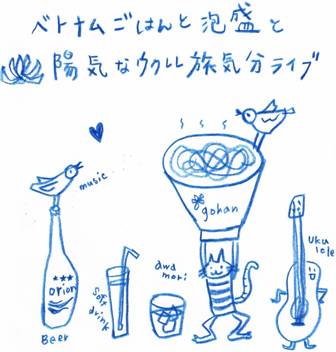 ベトナムごはんと泡盛と
陽気なウクレレ旅気分ライブ
music
gohan
Ukulele
orion
soft drink
awamori
Beer